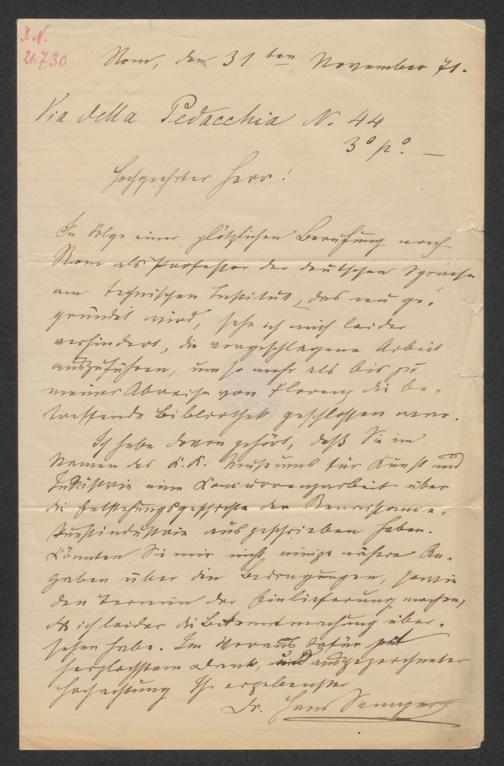 I. N.
21.730
Rom, den 31ten November 71.
Via della Pedacchia N. 44
3º pº. —
Hochgeehrter Herr!
In Folge einer plötzlichen Berufung nach
Rom als Professor der deutschen Sprache
am technischen Institut, das neu ge-
gründet wird, sehe ich mich leider
verhindert, die vorgeschlagene Arbeit
auszuführen, um so mehr als bis zu
meiner Abreise von Florenz die be-
treffende Bibliothek geschlossen war.
Ich habe davon gehört, daß Sie im
Namen des K. K. Museums für Kunst und
Industrie eine Concurrenzarbeit über
die Entstehungsgeschichte der Renaissance-
kunstindustrie ausgeschrieben haben.
Könnten Sie mir nicht einige nähere An-
gaben über die Bedingungen, sowie
den Termin der Einlieferung machen,
da ich leider die Bekanntmachung über-
sehen habe. Im Voraus dafür mit
herzlichstem Dank, und ausgezeichneter
Hochachtung Ihr ergebenster
Dr. Hans Semper